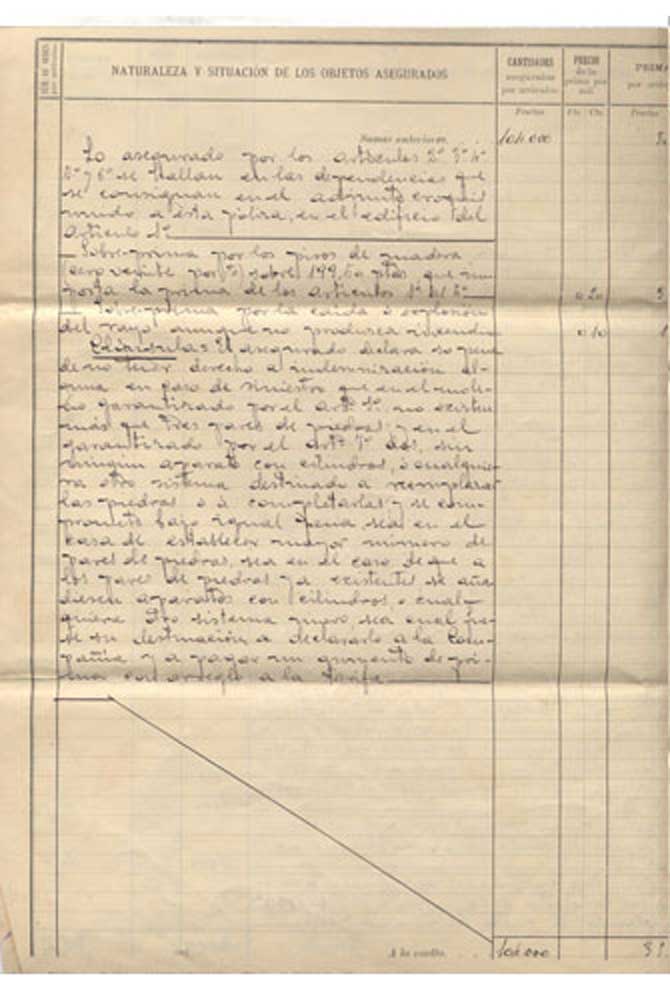 NATURALEZA Y SITUACIÓN DE LOS OBJETOS ASEGURADOS
CANTIDADES
aseguradas
por artículos
PRECIO
de la
prima por
mil
PRIMA
Pesetas
Cts.
Pesetas
Sumas anteriores. 104.000
Lo asegurado por los artículos 2º 3º 4º
5º y 6º se hallan en las dependencias que
se consignan en el adjunto croquis
unido a esta póliza, en el edificio del
artículo 1º
Sobre-prima por los pisos de madera
(cero veinte por %) sobre ptas que im-
porta la prima de los artículos 1º 0 20
Sobre-prima por la caida ó explosión
del rayo aunque no produzca incendio 0 10
Cláusulas: El asegurado declara so pena
de no tener derecho a indemnización al-
guna en caso de siniestro que en el moli-
no garantizado por el artº 1º no existen
más que tres pares de piedras; y en el
garantizado por el artº 7º dos, sin
ningún aparato con cilindros, ó cualquie-
ra otro sistema destinado a reemplazar
las piedras ó á completarlas; y se com-
promete bajo igual pena sea en el
caso de establecer mayor número de
pares de piedras, sea en el caso de que a
los pares de piedras ya existentes se aña
diesen aparatos con cilindros, o cual-
quiera otro sistema nuevo, sea cual fue-
se su destinación a declararlo a la Com-
pañia y a pagar un aumento de pri-
ma con arreglo a la tarifa
A la vuelta. 104.000